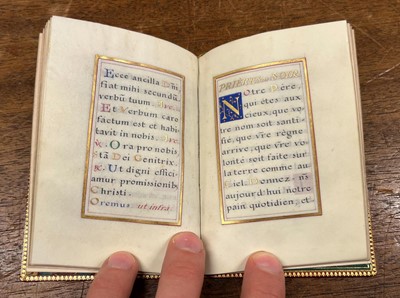 Ecce ancilla Dñi
fiat mihi secundũ
verbũ tuum.
Et Verbum caro
factum est et habi
tavit in nobis.
Ora pro nobis
stã Dei Genitrix.
Ut digni effici
amur promissionib
Christi.
Oremus ut infra
PRIERE
Notre Père,
qui êtes aux
cieux, que vo
tre nom soit santi
fie, que vr̃e règne
arrive, que vr̃e vo
lonté soit faite sur
la terre comme au
Ciel. Donnez nõ
aujourd'hui notre
pain quotidien, et